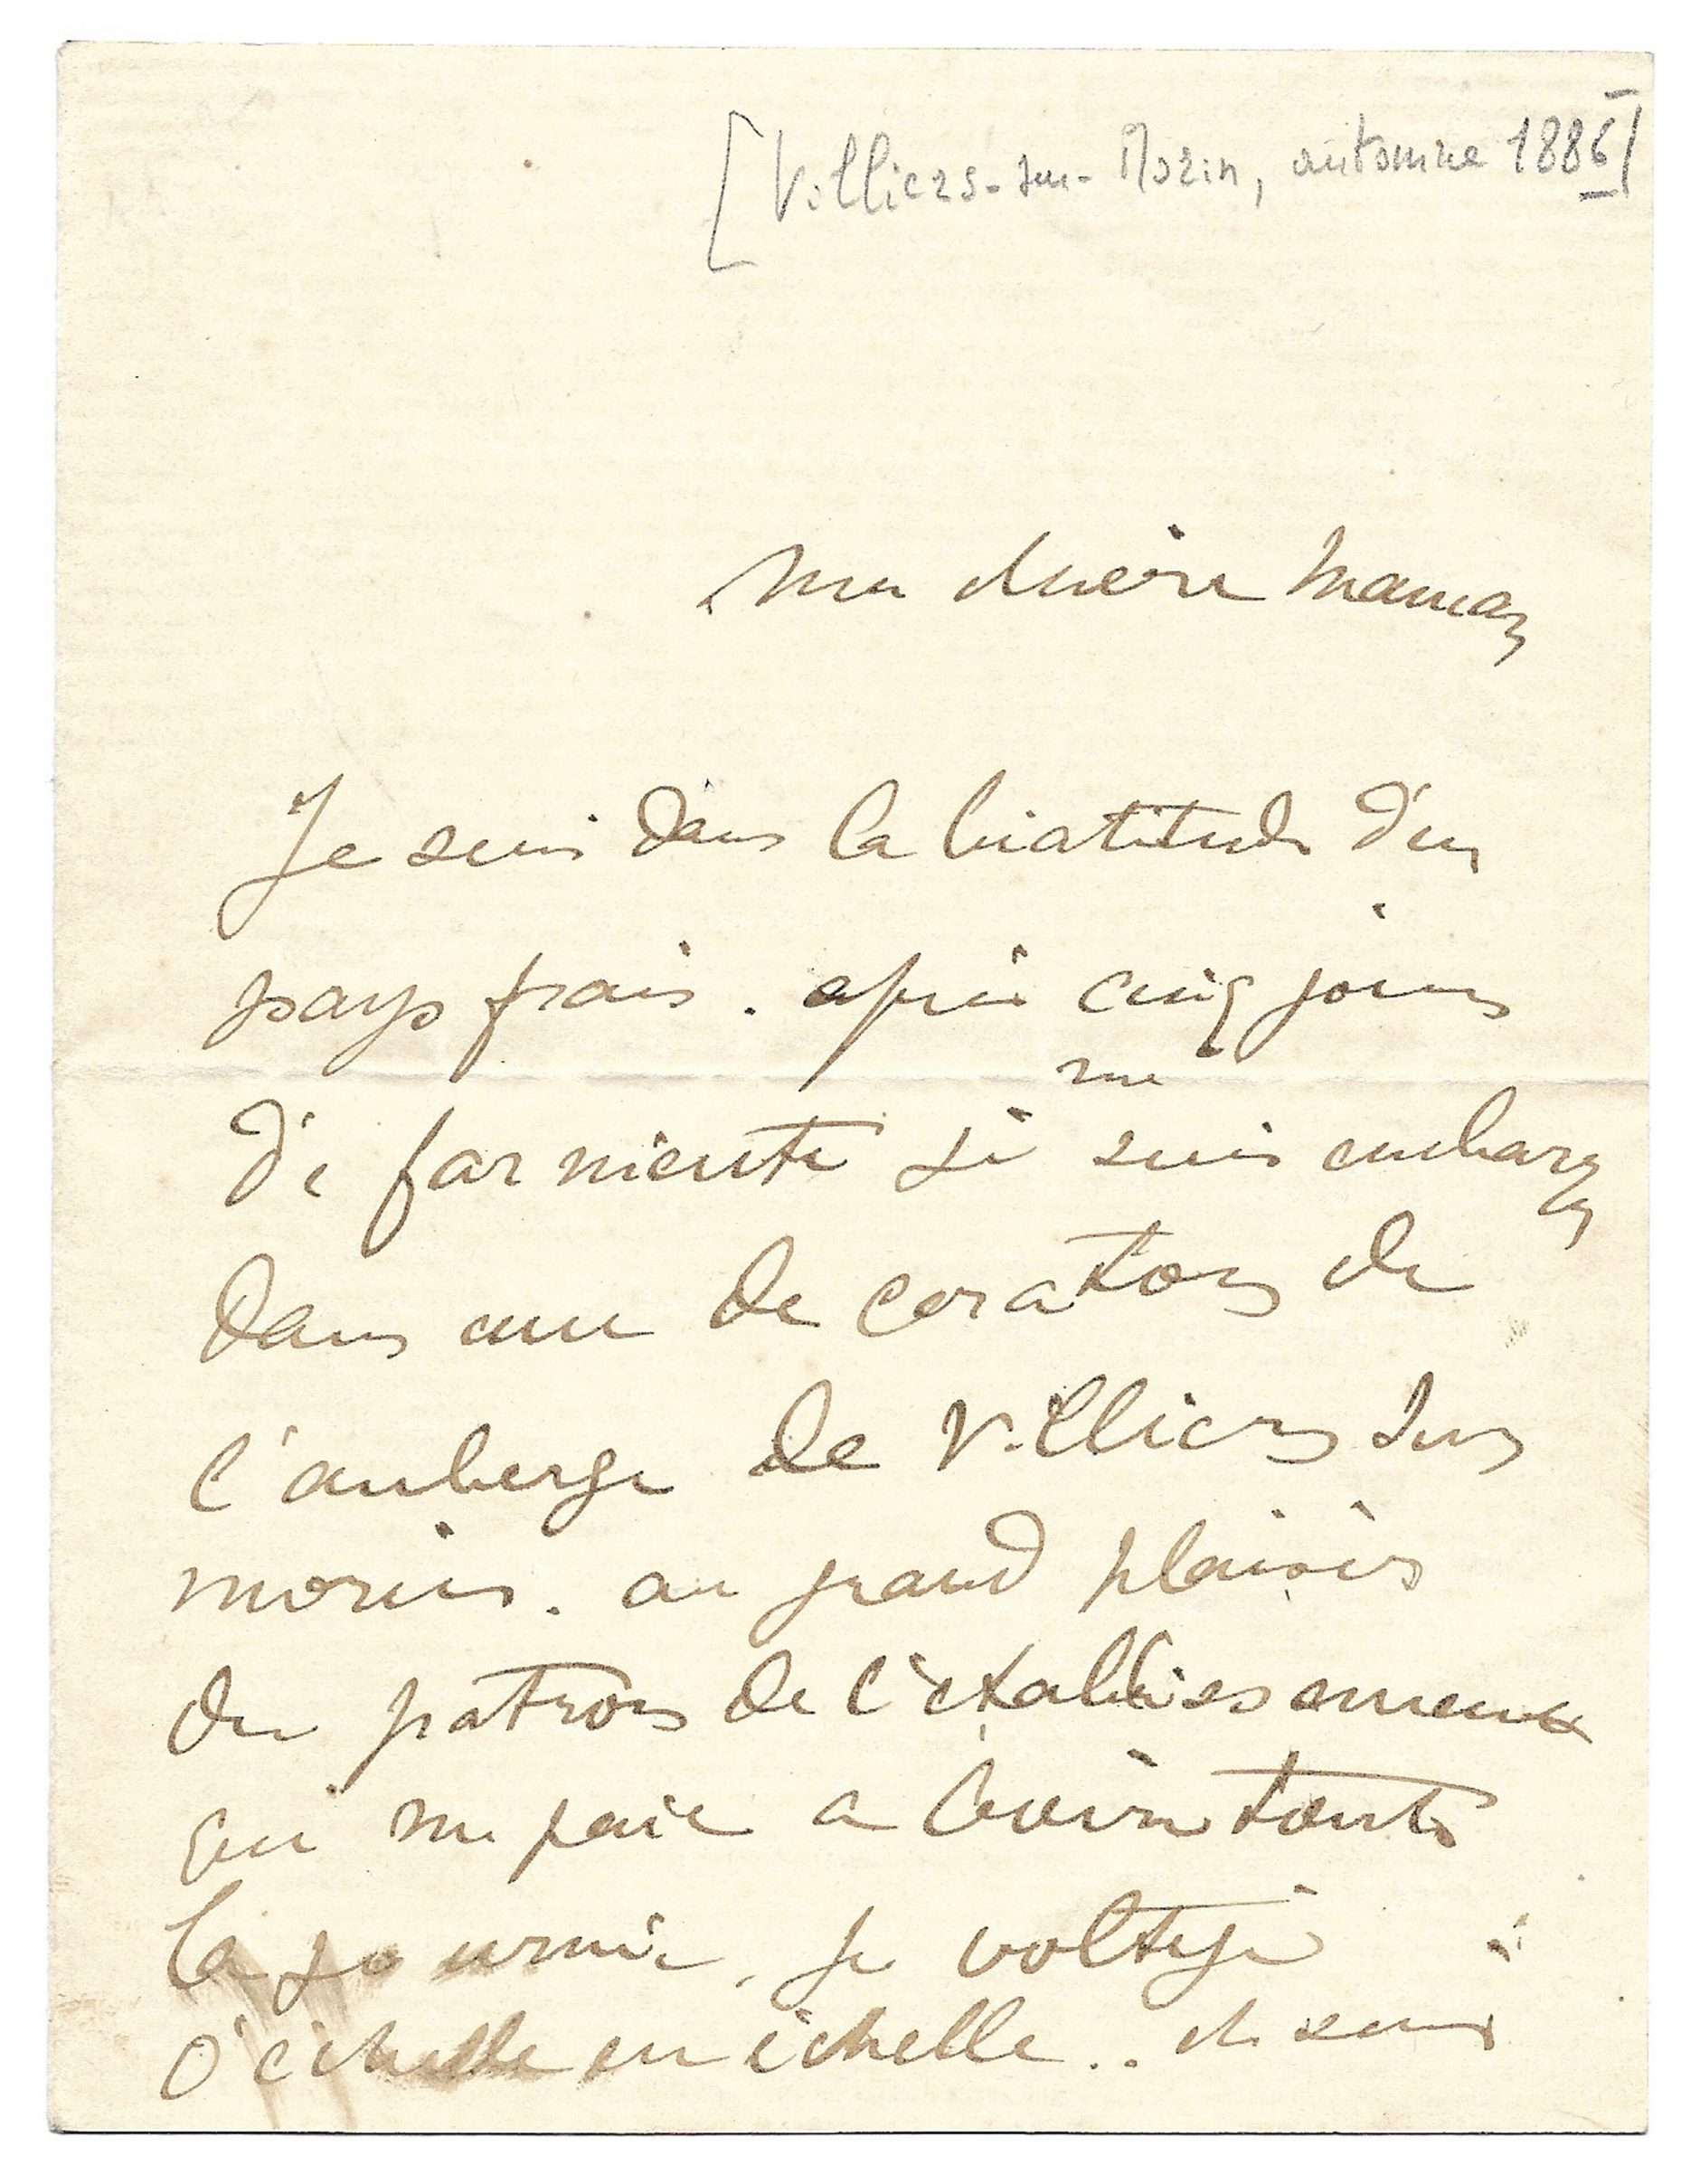 [Villiers-sur-Morin, automne 1886]
Ma chère Maman
Je suis dans la béatitude d'un
pays frais. après cinq jours
de far niente je me suis embarqué
dans une decoration de
l'auberge de Villiers sur
morin. au grand plaisir
du patron de l'établissement
qui me paie a boire toute
la journée, je voltige
d'échelle en échelle.. et suis